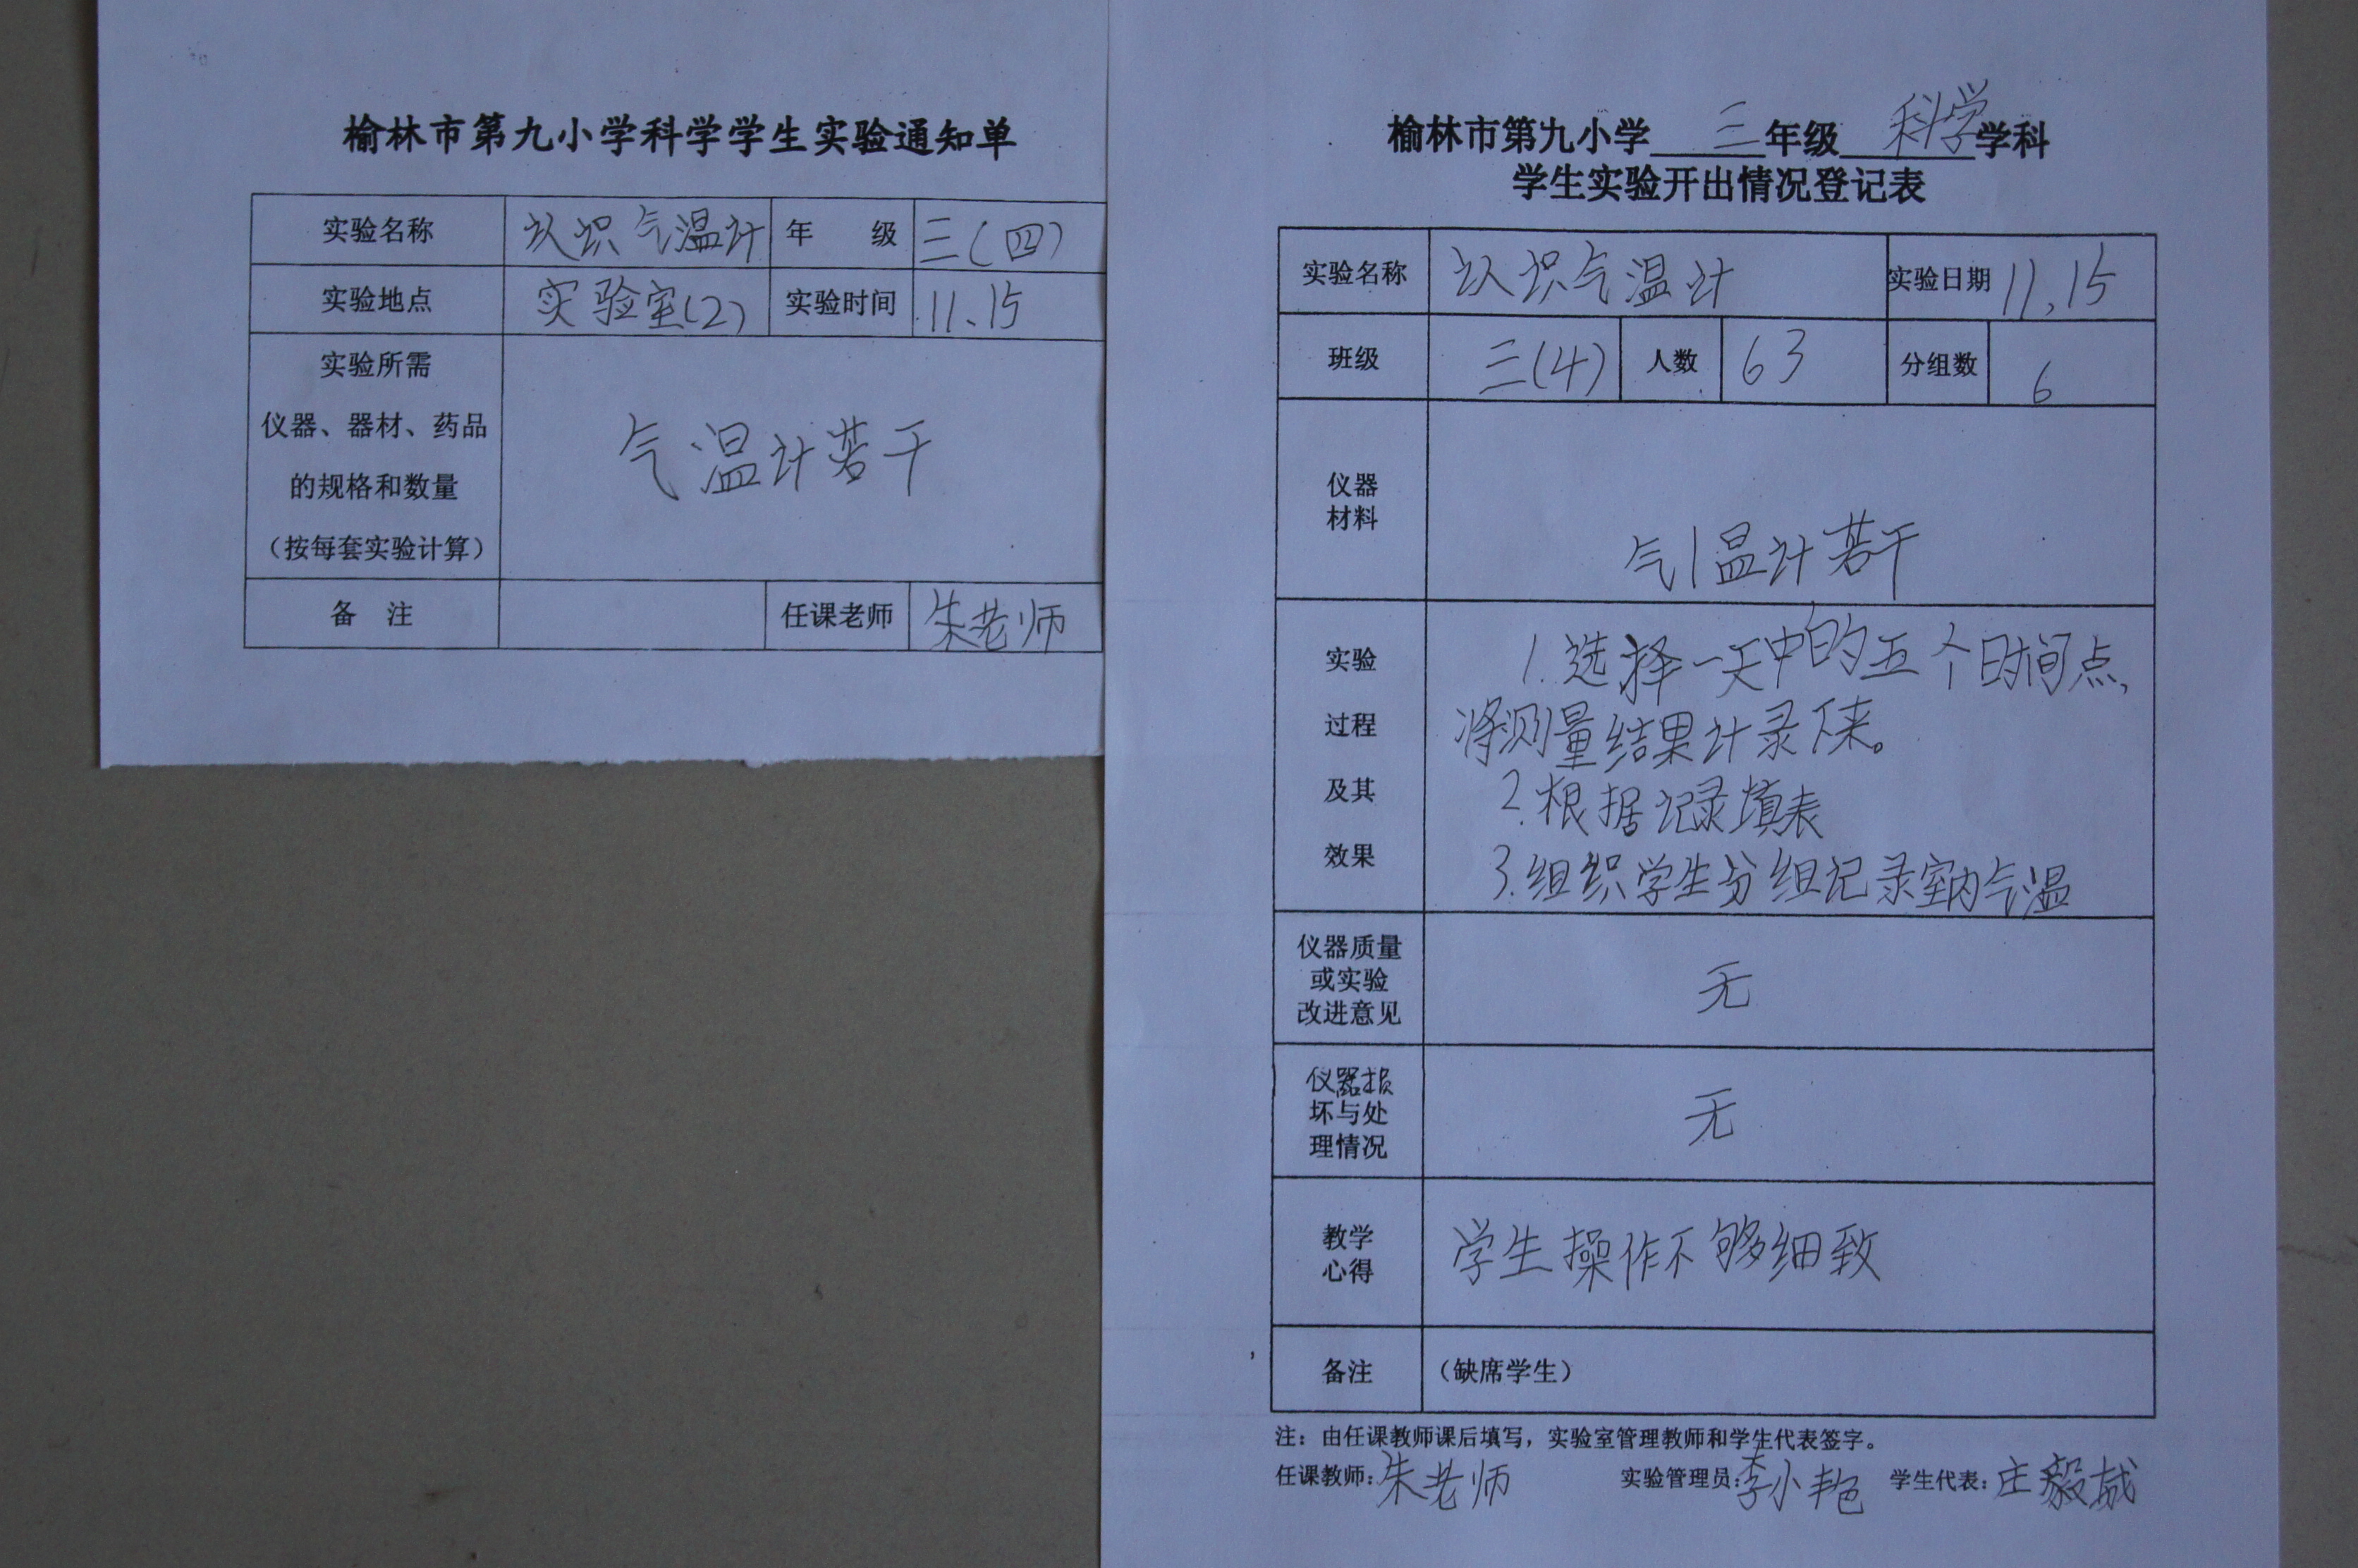 榆林市第九小学科学学生实验通知单
实验名称 认识气温计 年 级 三(四)
实验地点 实验室(2) 实验时间 11.15
实验所需
仪器、器材、药品
的规格和数量
(按每套实验计算)
气温计若干
备 注 任课老师 朱老师
榆林市第九小学 三 年级 科学 学科
学生实验开出情况登记表
实验名称 认识气温计 实验日期 11.15
班级 三(4) 人数 63 分组数 6
仪器
材料
气温计若干
实验
过程
及其
效果
1.选择一天中的五个时间点,
将测量结果计录下来。
2.根据记录填表
3.组织学生分组记录室内气温
仪器质量
或实验
改进意见
无
仪器损
坏与处
理情况
无
教学
心得
学生操作不够细致
备注 (缺席学生)
注:由任课教师课后填写,实验室管理教师和学生代表签字。
任课教师:朱老师 实验管理员:李小艳 学生代表:庄毅